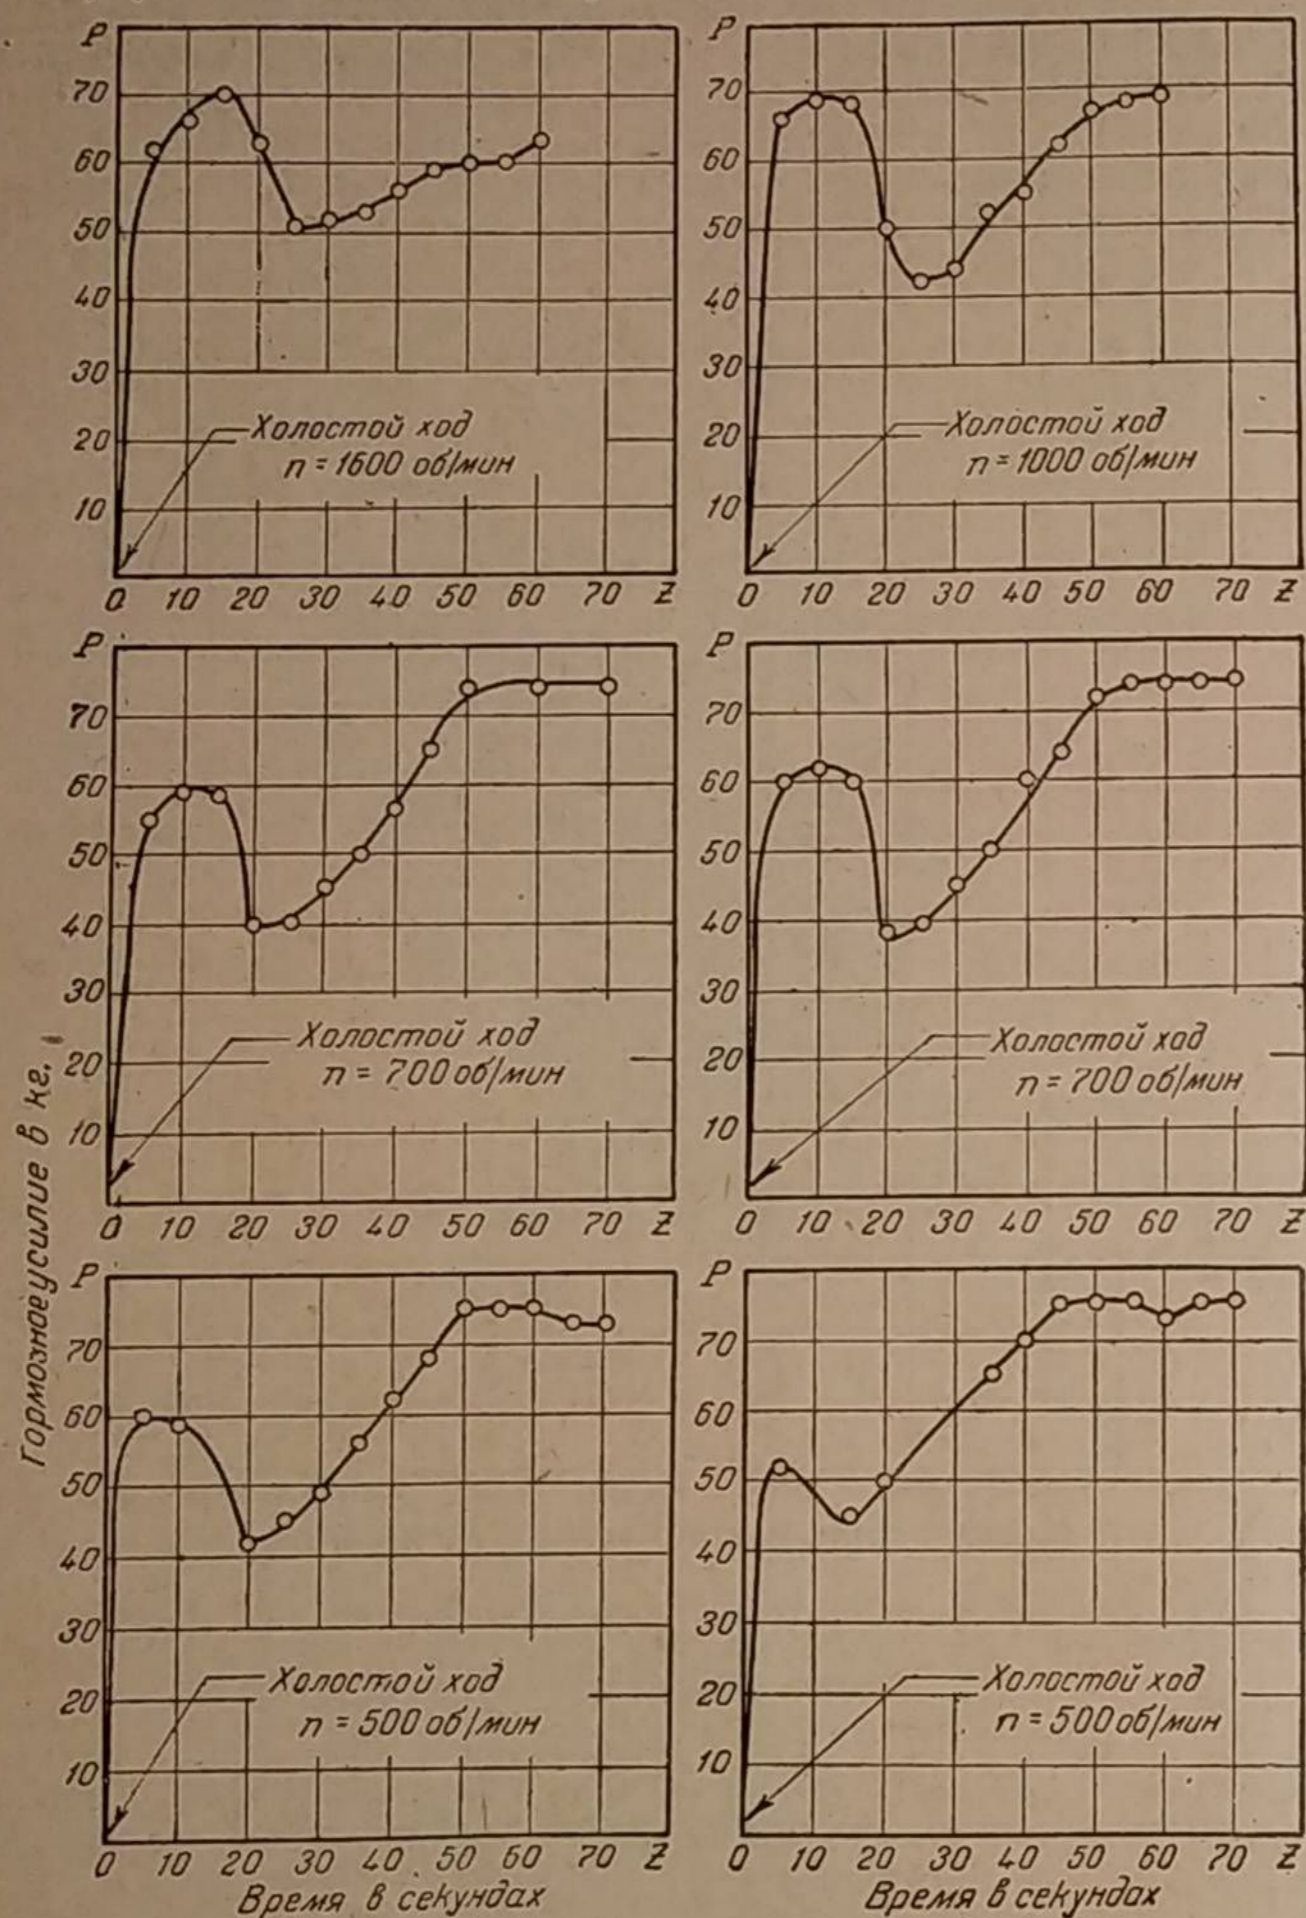 P
70
60
50
40
30
20
10
Холостой ход
n = 1600 об/мин
0 10 20 30 40 50 60 70 Z
P
70
60
50
40
30
20
10
Холостой ход
n = 1000 об/мин
0 10 20 30 40 50 60 70 Z
P
70
60
50
40
30
20
10
Холостой ход
n = 700 об/мин
0 10 20 30 40 50 60 70 Z
P
70
60
50
40
30
20
10
Холостой ход
n = 700 об/мин
0 10 20 30 40 50 60 70 Z
P
70
60
50
40
30
20
10
Холостой ход
n = 500 об/мин
0 10 20 30 40 50 60 70 Z
Время в секундах
P
70
60
50
40
30
20
10
Холостой ход
n = 500 об/мин
0 10 20 30 40 50 60 70 Z
Время в секундах
Тормозное усилие в кг.